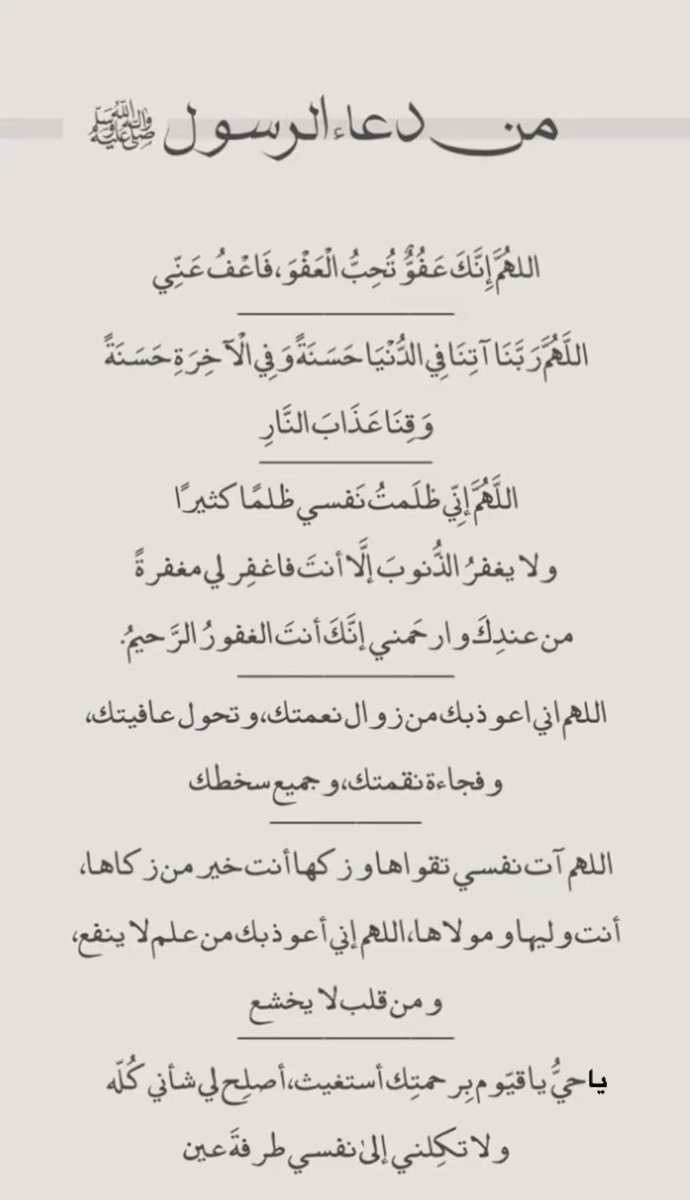 من دعاء الرسول ﷺ
اللهُمَّ إِنَّكَ عَفُوٌّ تُحِبُّ الْعَفْوَ، فَاعْفُ عَنِّي
اللَّهُمَّ رَبَّنَا آتِنَا فِي الدُّنْيَا حَسَنَةً وَفِي الْآخِرَةِ حَسَنَةً
وَقِنَا عَذَابَ النَّارِ
اللَّهُمَّ إنِّي ظلَمتُ نَفسي ظلمًا كثيرًا
ولا يغفرُ الذُّنوبَ إلَّا أنتَ فاغفِر لي مغفرةً
من عندِكَ وارحَمني إنَّكَ أنتَ الغفورُ الرَّحيمُ.
اللهم اني اعوذ بك من زوال نعمتك، وتحول عافيتك،
وفجاءة نقمتك، وجميع سخطك
اللهم آت نفسي تقواها وزكها أنت خير من زكاها،
أنت وليها ومولاها، اللهم إني أعوذ بك من علم لا ينفع،
ومن قلب لا يخشع
يا حيُّ يا قيّوم بِرحمتِك أستغيث، أصلِح لي شأني كُلّه
ولا تكِلني إلىٰ نفسي طرفةَ عين